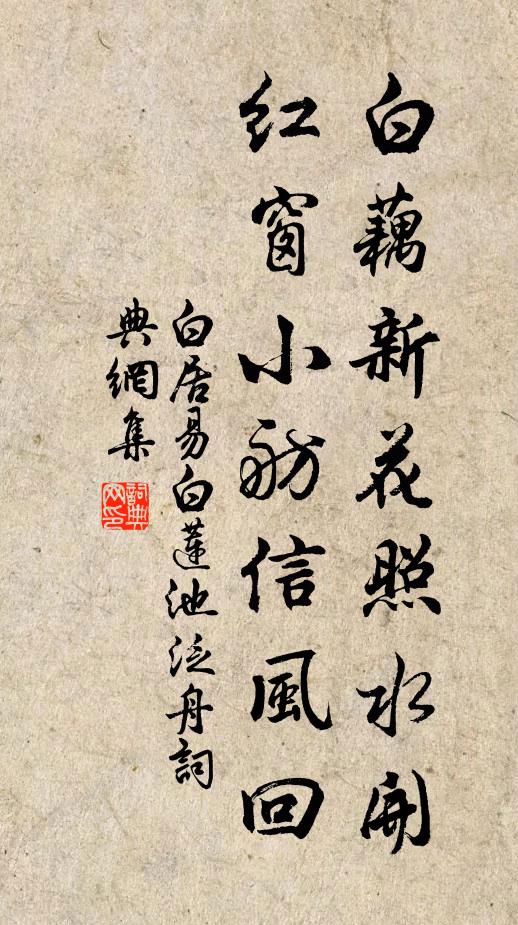 白藕新花照水開
紅窗小舫信風回
白居易白蓮池泛舟詞
典網集
詞典
网印